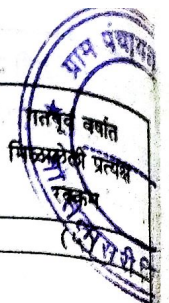 ग्राम पंचायत
गतपूर्व वर्षात
मिळालेली प्रत्यक्ष
रक्कम